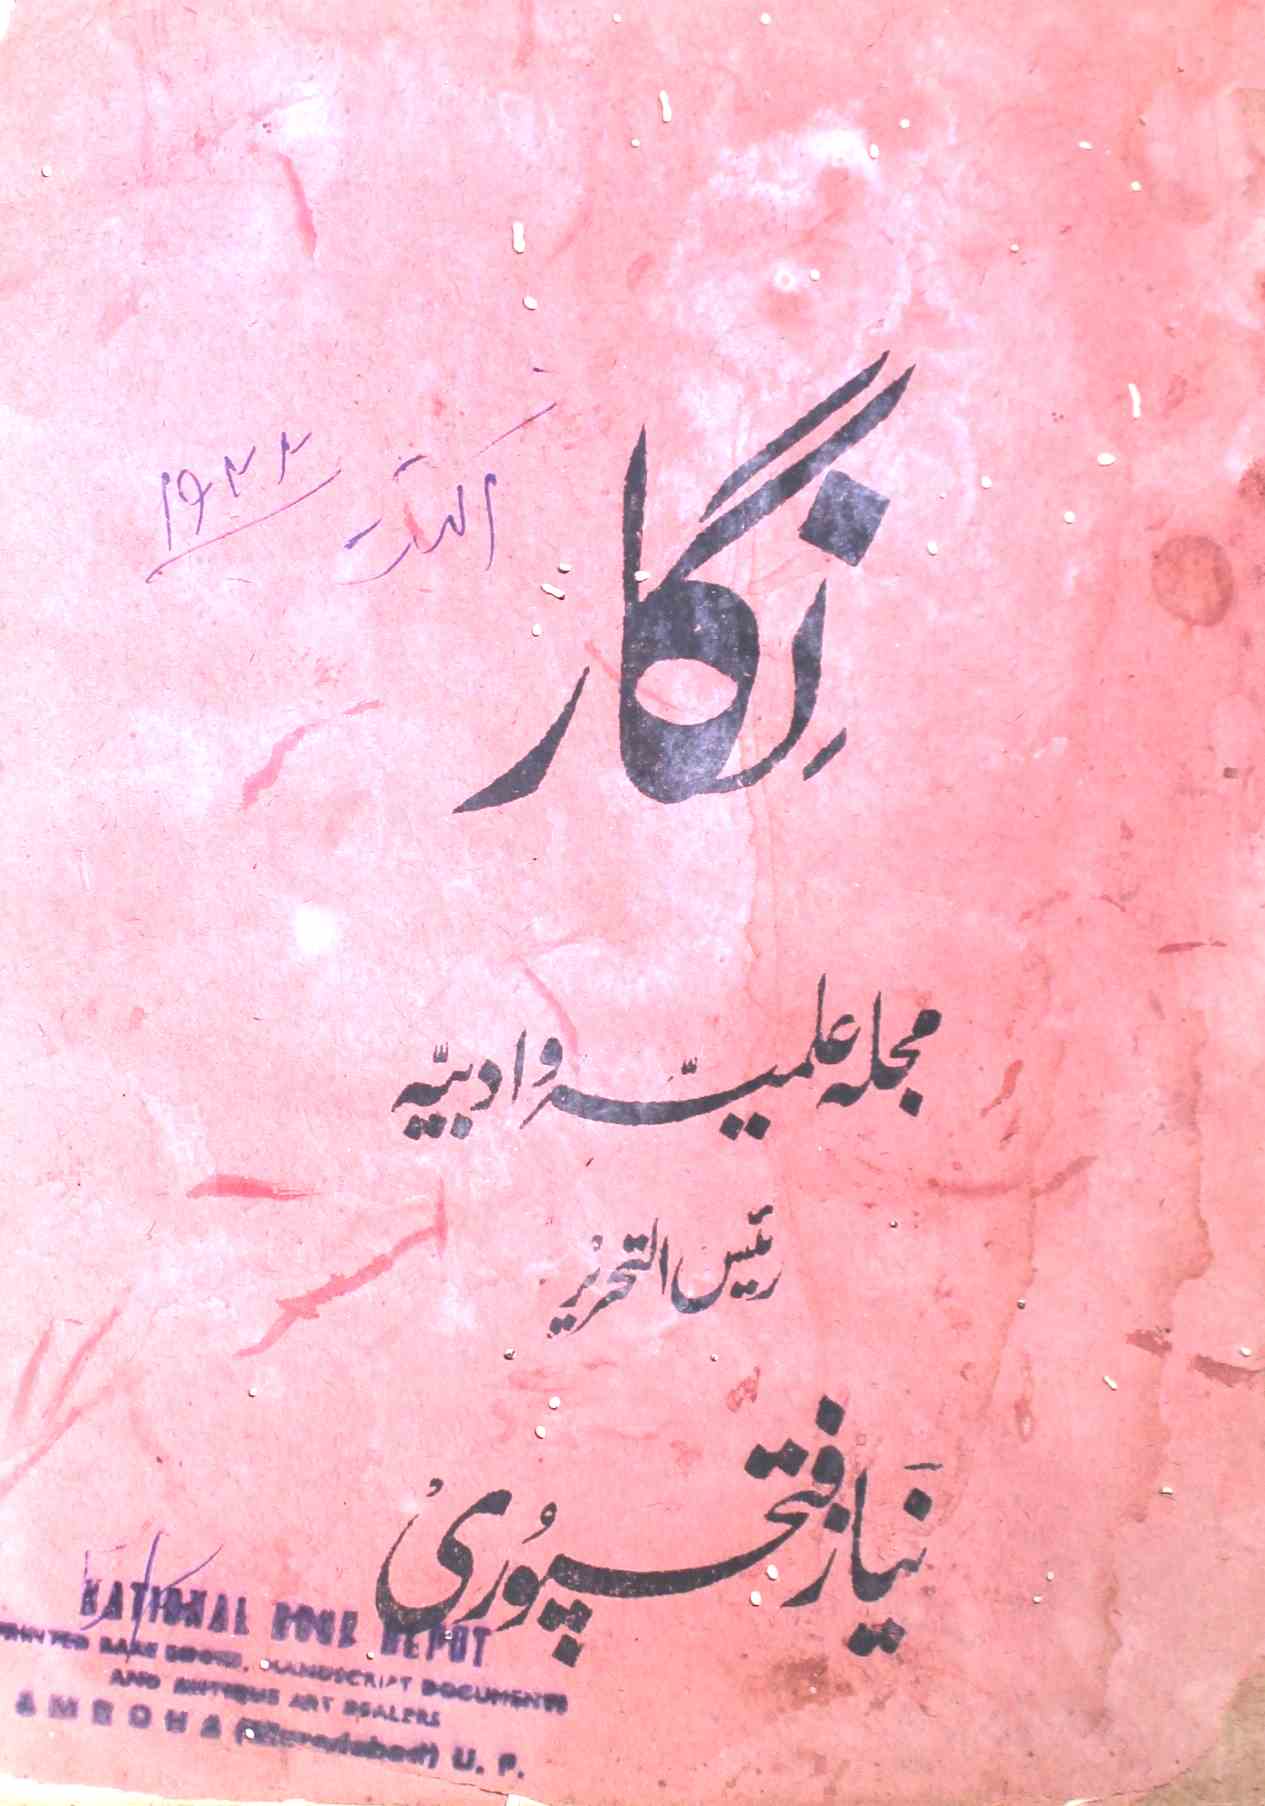 نِگار
اگست
۱۹۴۴
مجلہ علمیّہ و ادبیّہ
رئیس التحریر
نیاز فتحپوری
NATIONAL BOOK DEPOT
PRINTED RARE BOOKS, MANUSCRIPT DOCUMENTS
AND ANTIQUE ART DEALERS
AMROHA (Moradabad) U. P.